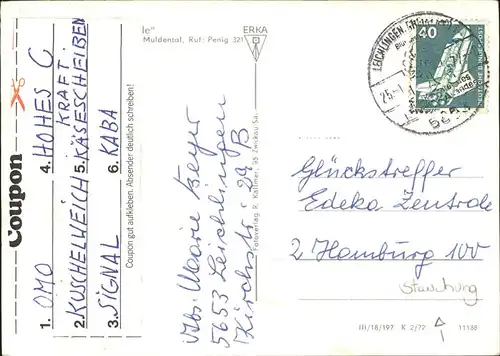 Coupon
1. OMO
2. KUSCHELWEICH
3. SIGNAL
4. HOHES C
KRAFT
5. KÄSESCHEIBEN
6. KABA
Coupon gut aufkleben. Absender deutlich schreiben!
le"
Muldental, Ruf: Penig 321
ERKA
Abs: Marie Beyer
5653 Leichlingen
Kirchstr. 29 B
Fotoverlag R. Kallmer, 95 Zwickau Sa.
LEICHLINGEN
40
DEUTSCHE BUNDESPOST
Glückstreffer
Edeka Zentrale
2 Hamburg 100
Stauchung
III/18/197 K 2/72 11188